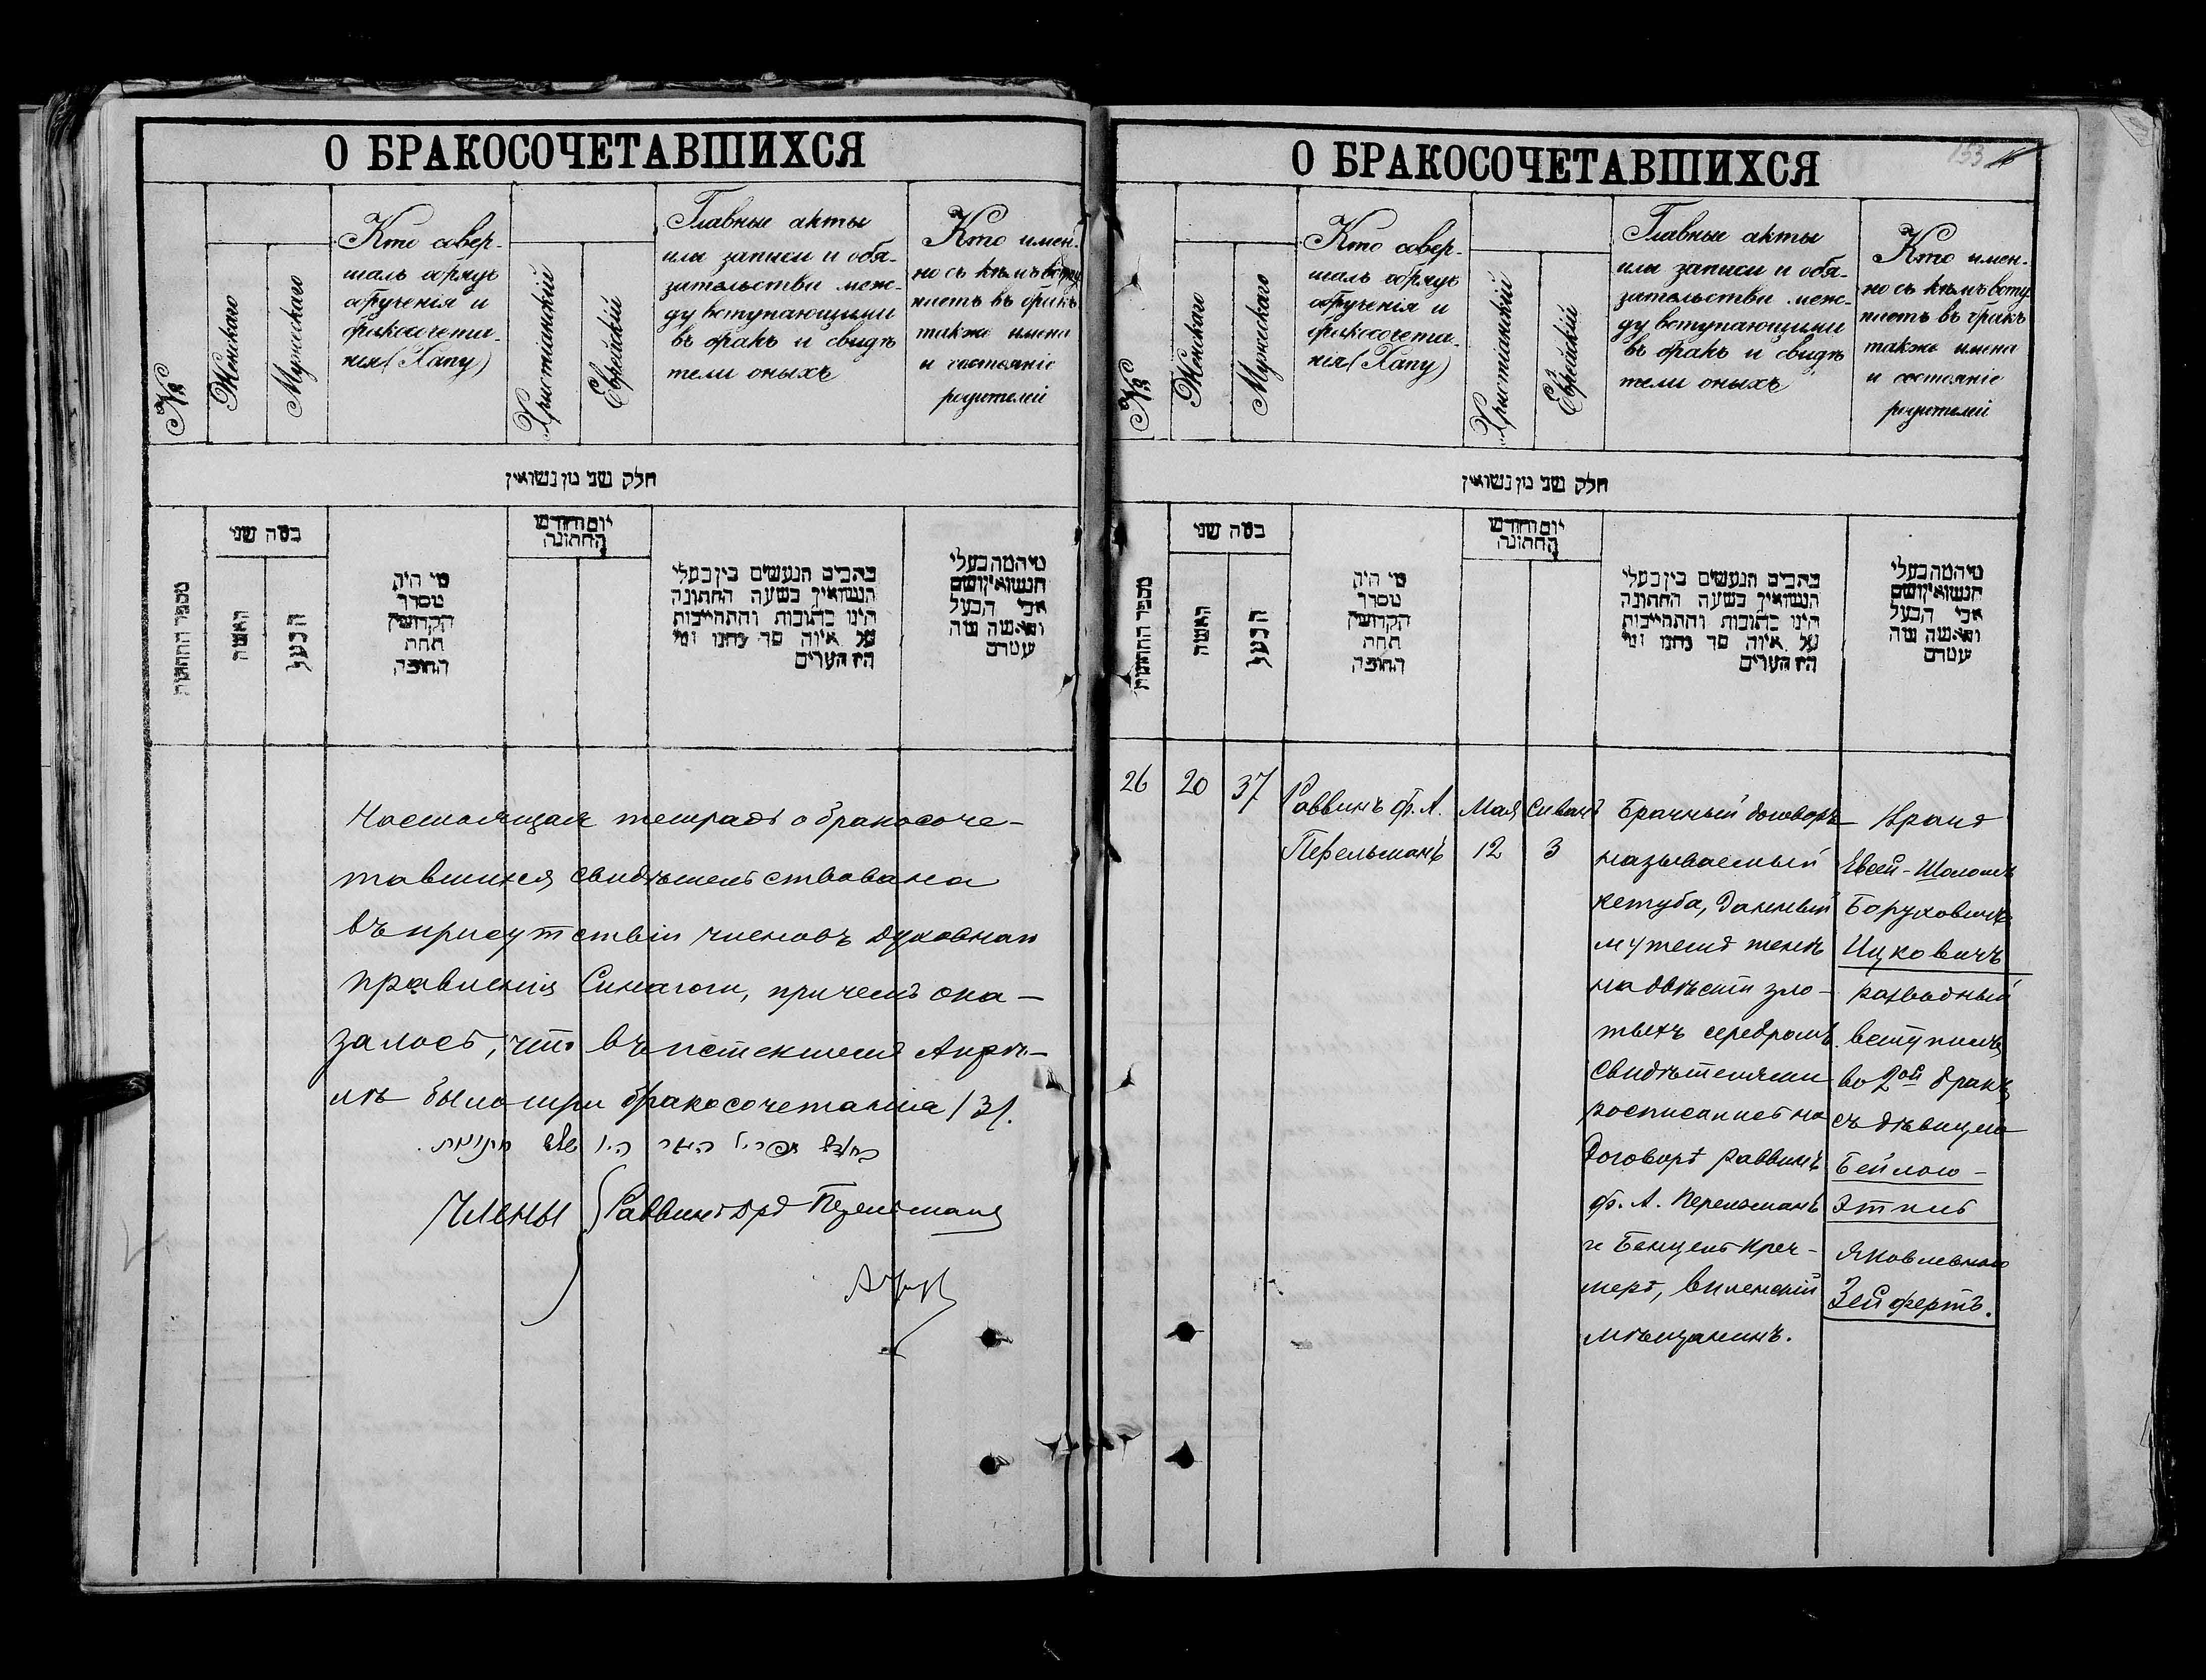 О БРАКОСОЧЕТАВШИХСЯ
№
Женскаго
Мужескаго
Кто совер-
шалъ обрядъ
обрученія и
бракосочета-
нія (Хапу)
Христіанскій
Еврейскій
Главные акты
или записи и обя-
зательства меж-
ду вступающими
въ бракъ и свидѣ
тели оныхъ
Кто имен-
но съ кѣмъ всту
паетъ въ бракъ
также имена
и состояніе
родителей
חלק שני מן נשואין
מספר החתונות
כמה שני
האשה
הבעל
מי היה
מסדר
הקדושין
תחת
החופה
יום וחודש
החתונה
כתבים הנעשים בין בעלי
הנשואין בשעה החתונה
היינו כתובות והתחייבות
על איזה סך נתנו ומי
הי׳ העדים
מי המה בעלי
הנשואין ושם
אבי הבעל
והאשה ומה
עמדם
Настоящая тетрадь о бракосоче-
тавшихся свидѣтельствована
въ присутствіи членовъ духовнаго
правленія Синагоги, причемъ ока-
залось, что въ истекшемъ Апрѣ-
лѣ было три бракосочетанія /3/.
בחודש אפריל העבר היו שלש חתונות.
Члены
Раввинъ Перельманъ
О БРАКОСОЧЕТАВШИХСЯ
153
№
Женскаго
Мужескаго
Кто совер-
шалъ обрядъ
обрученія и
бракосочета-
нія (Хапу)
Христіанскій
Еврейскій
Главные акты
или записи и обя-
зательства меж-
ду вступающими
въ бракъ и свидѣ
тели оныхъ
Кто имен-
но съ кѣмъ всту
паетъ въ бракъ
также имена
и состояніе
родителей
חלק שני מן נשואין
מספר החתונות
כמה שני
האשה
הבעל
מי היה
מסדר
הקדושין
תחת
החופה
יום וחודש
החתונה
כתבים הנעשים בין בעלי
הנשואין בשעה החתונה
היינו כתובות והתחייבות
על איזה סך נתנו ומי
הי׳ העדים
מי המה בעלי
הנשואין ושם
אבי הבעל
והאשה ומה
עמדם
26
20
37
Раввинъ Ф. А.
Перельманъ
Мая
12
Сиванъ
3
Брачный договоръ
называемый
кетуба, данный
мужемъ женѣ
на двѣсти зло-
тыхъ серебромъ.
Свидѣтелями
росписались на
договорѣ раввинъ
Ф. А. Перельманъ
и Бенцель Креч-
меръ, виленскій
мѣщанинъ.
Евсей-Шоломъ
Боруховичъ
Ицковичъ
разводный
вступилъ
во 2ой бракъ
съ дѣвицею
Бейлою-
Этлъ
Яковлевною
Зейфертъ.